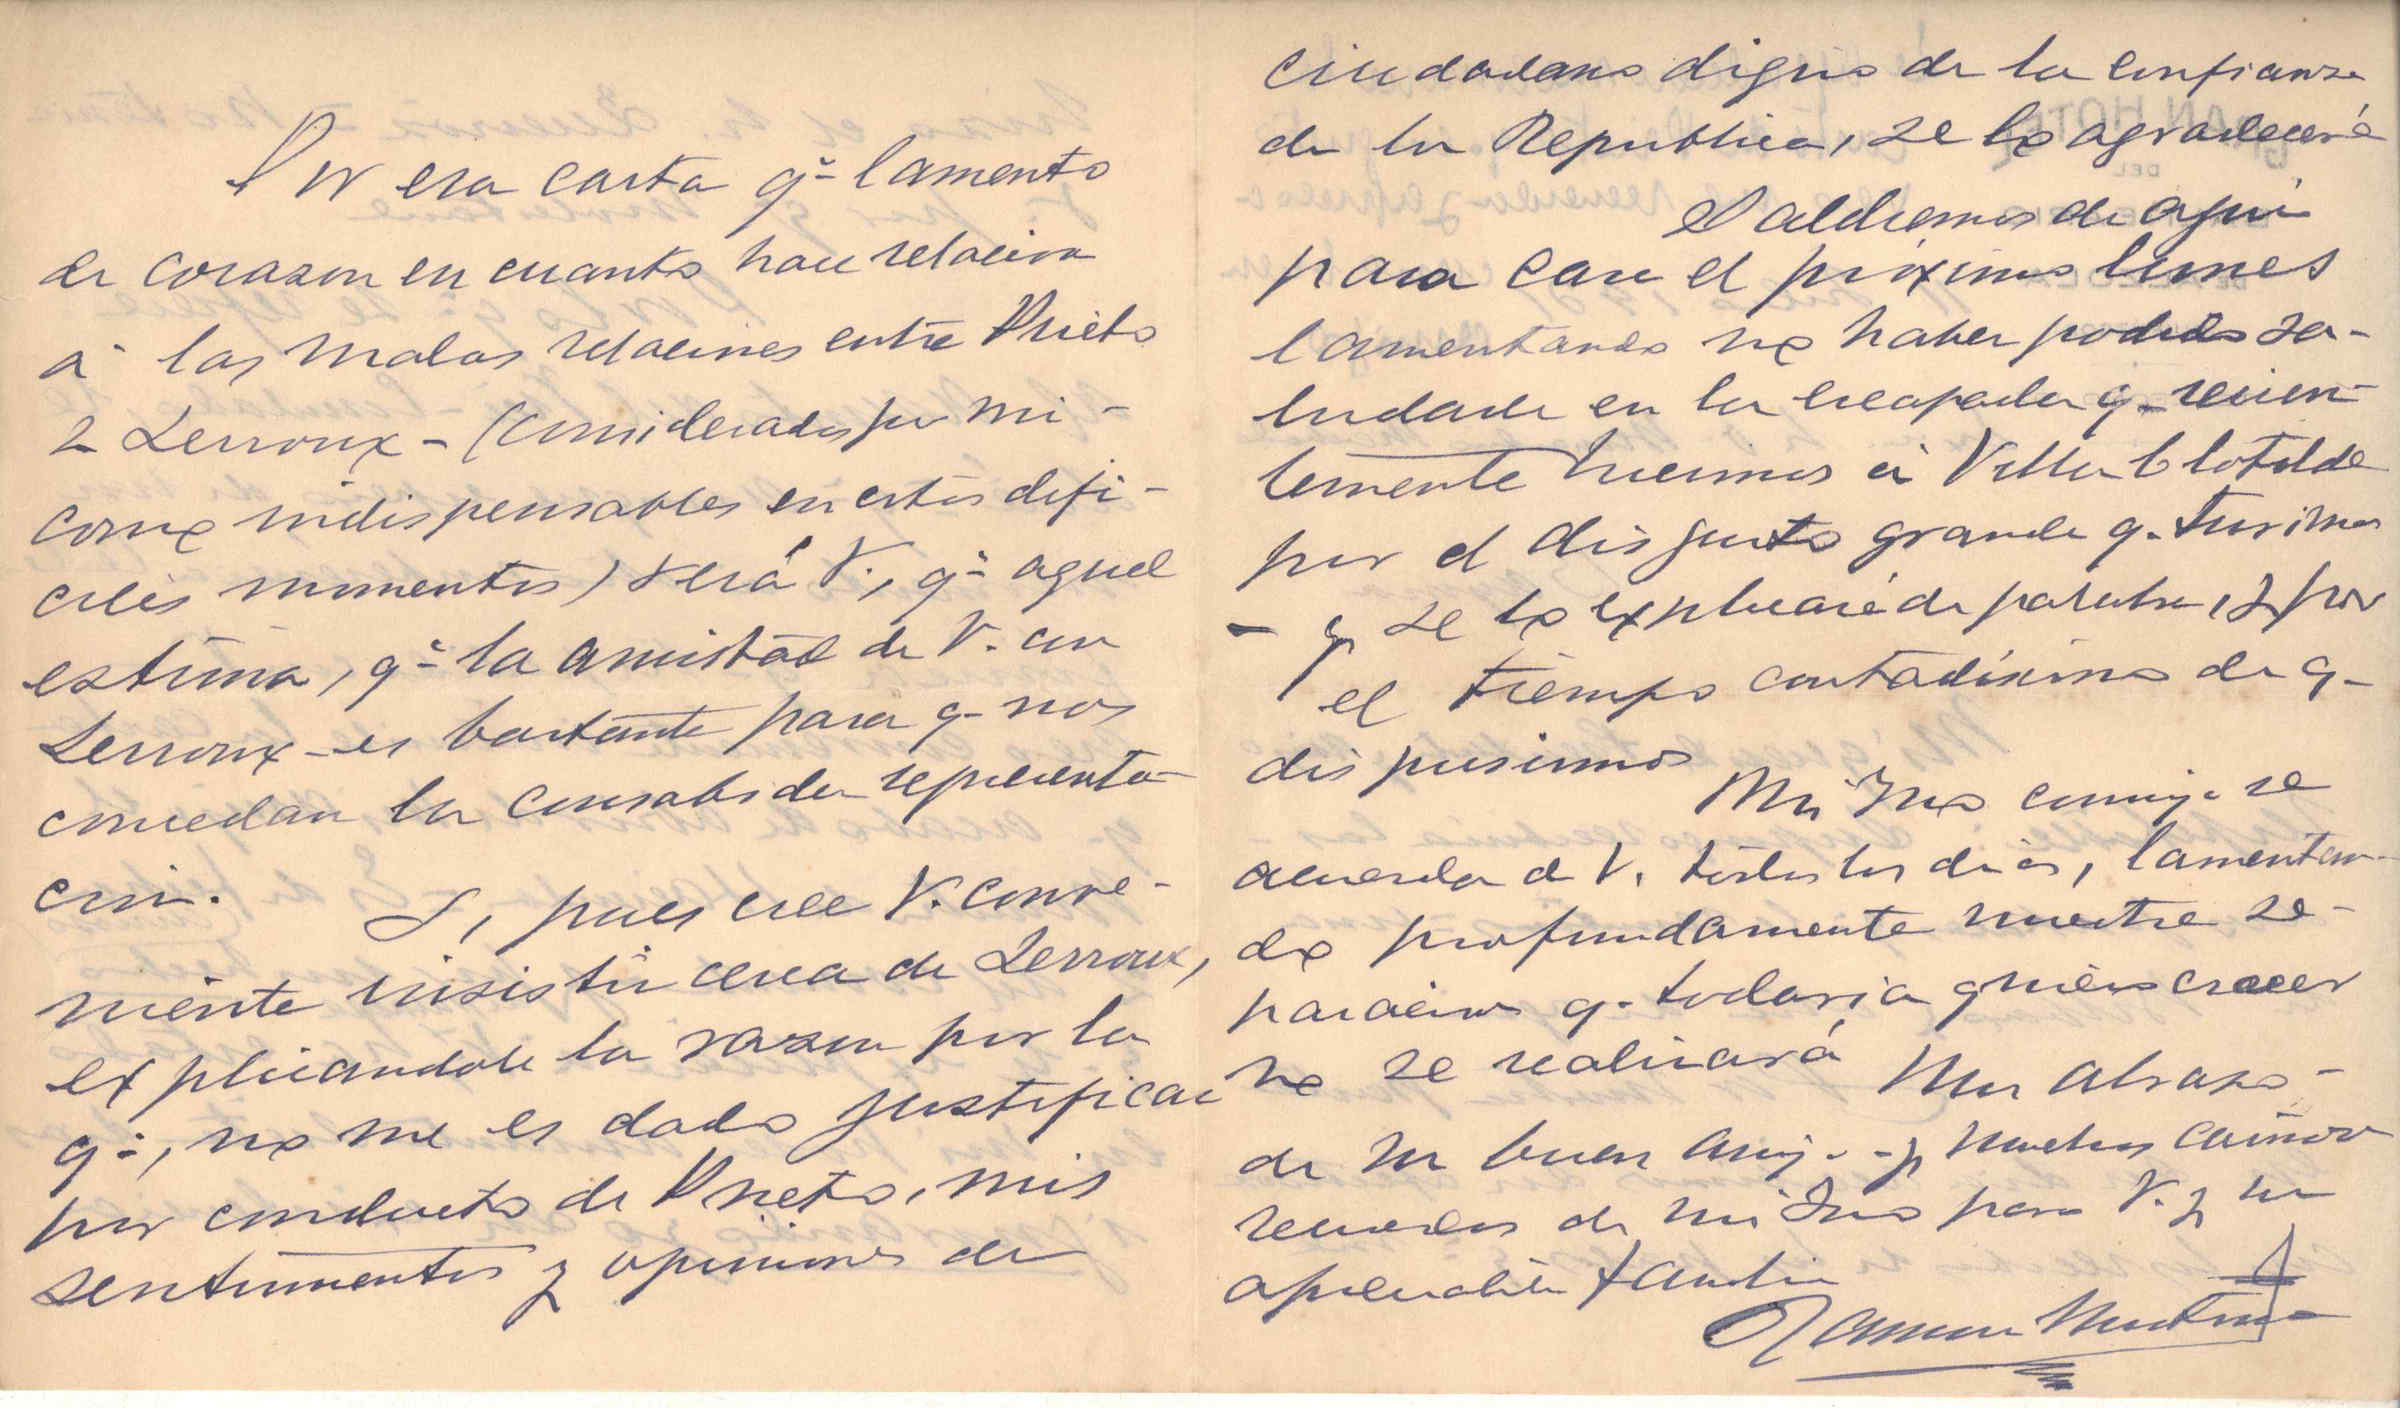 Por esa carta qᵉ lamento
de corazon en cuanto hace relacion
á las malas relaciones entre Prieto
y Lerroux - (considerados por mi -
como indispensables en estos difi-
ciles momentos) verá V., qᵉ aquel
estima, qᵉ la amistad de V. con
Lerroux - es bastante para q- nos
concedan la consabida representa-
cion.
Si, pues cree V. conve-
niente insistir cerca de Lerroux,
explicandole la razon por la
qᵉ, no me es dado justificar
por conducto de Prieto, mis
sentimientos y opiniones de
ciudadano digno de la confianza
de la Republica, se lo agradeceré
Saldremos de aquí
para casa el próximo lunes
lamentando no haber podido sa-
ludarle en la escapada q- recien-
temente hicimos á Villa Clotilde
por el disgusto grande q. tuvimos
- q se lo explicaré de palabra, y por
el tiempo contadísimo de q-
dispusimos
Mi conmigo se
acuerda de V. todos los dias, lamentan-
do profundamente nuestra se-
paracion q. todavia quiero creer
no se realizará
Un abrazo -
de su buen amigo - y muchos cariñosos
recuerdos de mi para V. y su
apreciable familia
Ramon